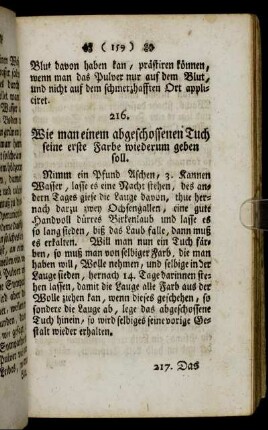 ( 159 )
Blut davon haben kan, prästiren können,
wenn man das Pulver nur auf dem Blut,
und nicht auf dem schmertzhafften Ort appli-
ciret.
216.
Wie man einem abgeschossenen Tuch
seine erste Farbe wiederum geben
soll.
Nimm ein Pfund Aschen, 3. Kannen
Wasser, lasse es eine Nacht stehen, des an-
dern Tages giese die Lauge davon, thue her-
nach darzu zwey Ochsengallen, eine gute
Handvoll dürres Birkenlaub und lasse es
so lang sieden, biß das Laub falle, dann muß
es erkalten. Will man nun ein Tuch fär-
ben, so muß man von selbiger Farb, die man
haben will, Wolle nehmen, und selbige in der
Lauge sieden, hernach 14. Tage darinnen ste-
hen lassen, damit die Lauge alle Farb aus der
Wolle ziehen kan, wenn dieses geschehen, so
sondere die Lauge ab, lege das abgeschossene
Tuch hinein, so wird selbiges seine vorige Ge-
stalt wieder erhalten.
217. Das